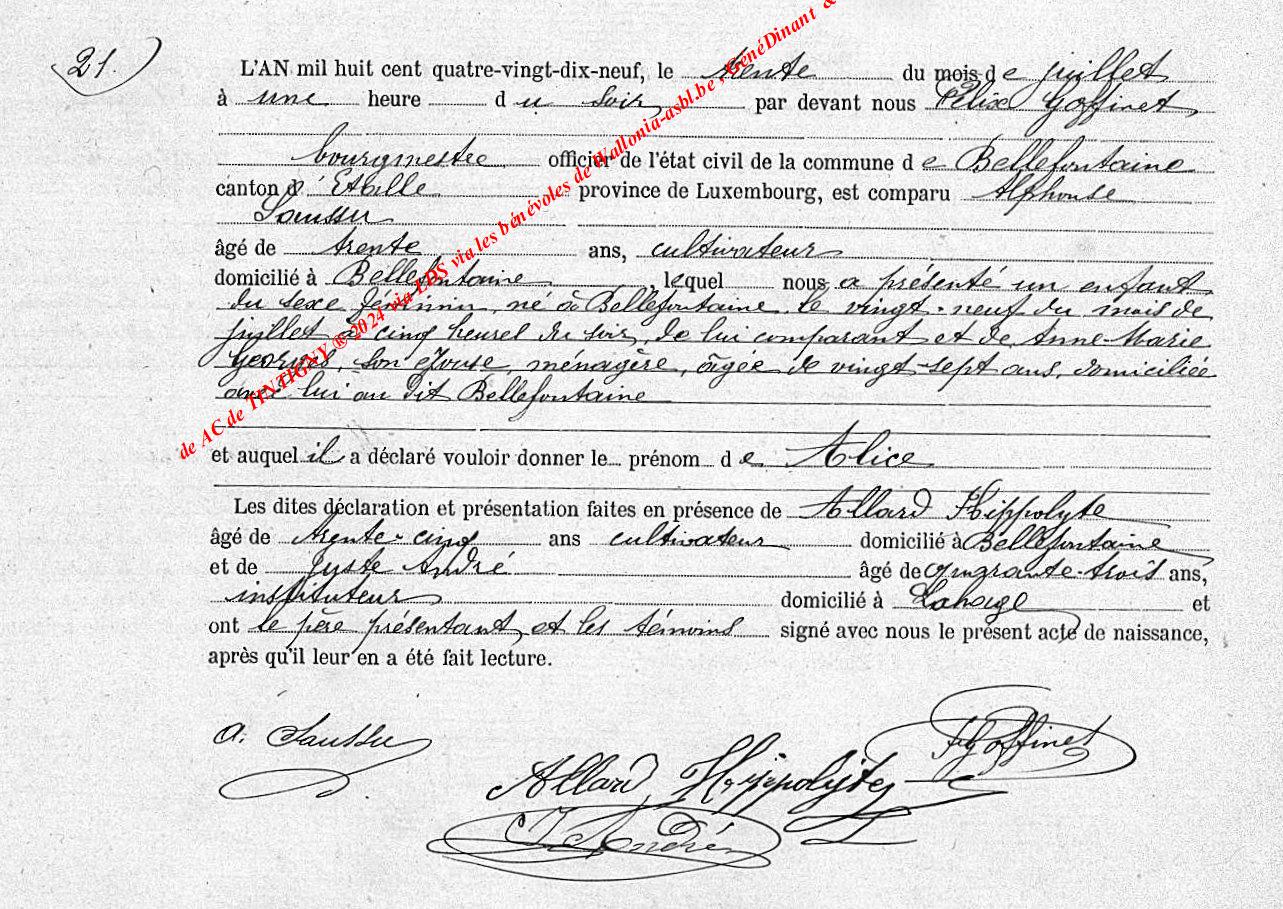 21.
L'AN mil huit cent quatre-vingt-dix-neuf, le trente du mois de juillet
à une heure du soir, par devant nous Félix Goffinet,
bourgmestre officier de l'état civil de la commune de Bellefontaine
canton d'Etalle province de Luxembourg, est comparu Alphonse
Saussu
âgé de trente ans, cultivateur
domicilié à Bellefontaine, lequel nous a présenté un enfant
du sexe féminin, né à Bellefontaine, le vingt-neuf du mois de
juillet à cinq heures du soir, de lui comparant et de Anne-Marie
Georges, son épouse, ménagère, âgée de vingt-sept ans, domiciliée
avec lui au dit Bellefontaine
et auquel il a déclaré vouloir donner le prénom de Alice
Les dites déclaration et présentation faites en présence de Allard Hippolyte
âgé de trente-cinq ans cultivateur domicilié à Bellefontaine
et de Juste André âgé de quarante-trois ans,
instituteur domicilié à Lahage et
ont le père présentant et les témoins signé avec nous le présent acte de naissance,
après qu'il leur en a été fait lecture.
A. Saussu
FGoffinet
Allard Hippolyte
J André
de AC de TINTIGNY ® 2024 via LDS via les bénévoles de Wallonia-asbl.be, GénéDinant &